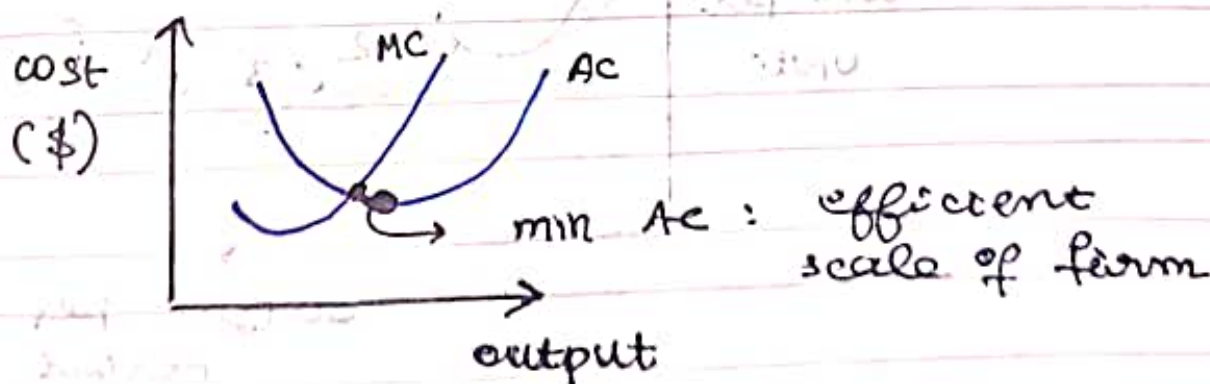 cost
($)
MC
AC
min AC : efficient
scale of firm
output